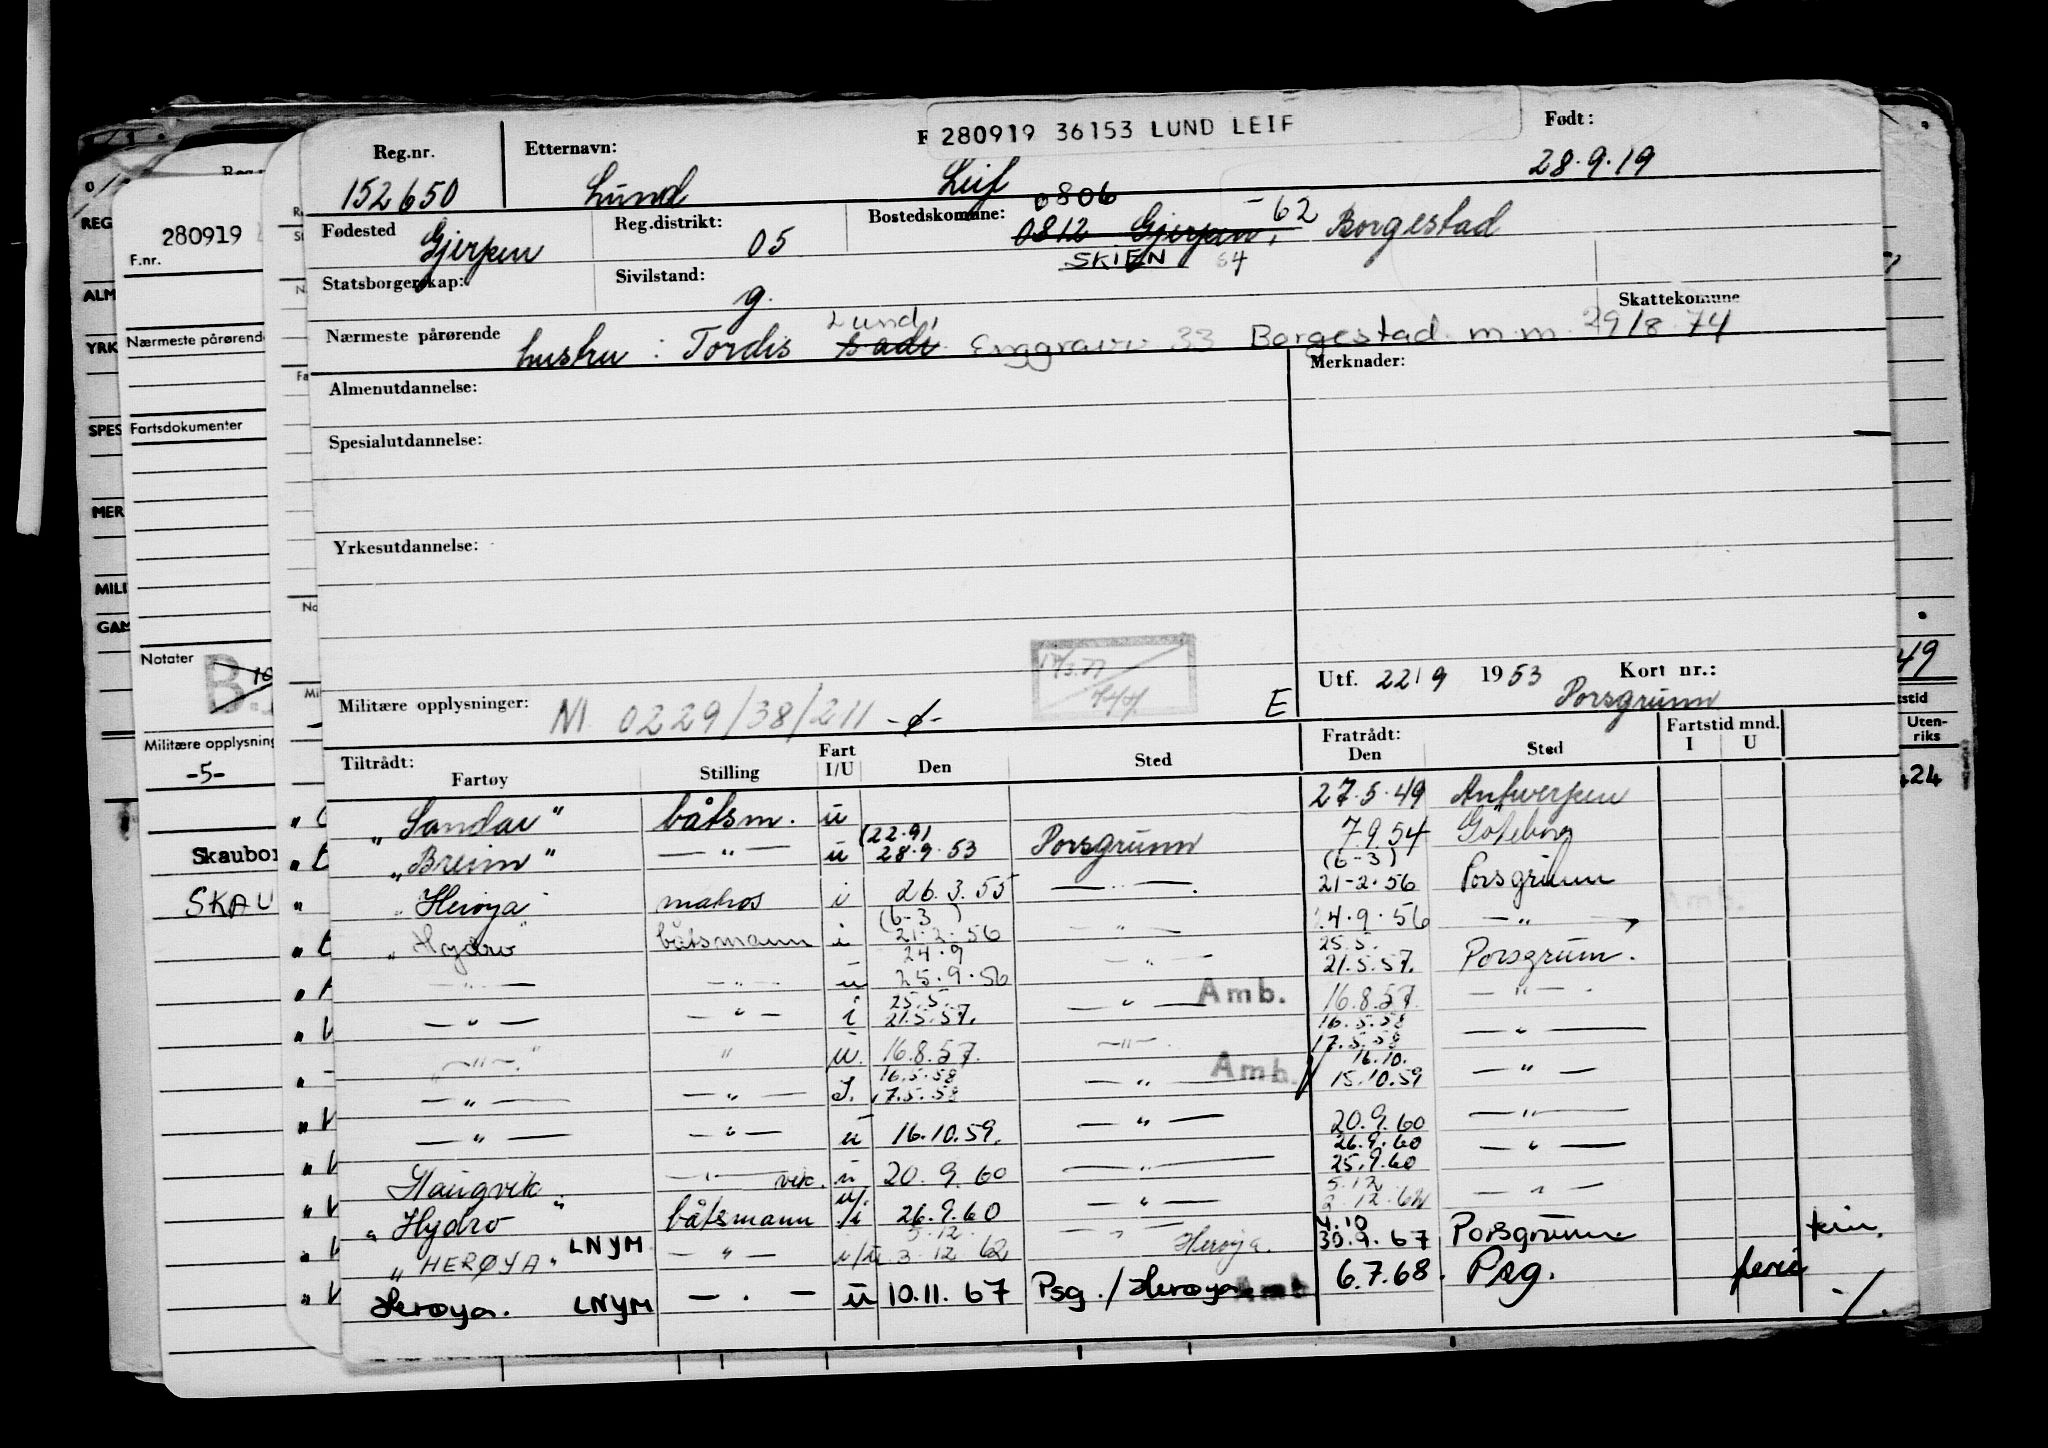 280919 36153 LUND LEIF
Reg.nr. Etternavn: F Født:
152650 Lund Leif 28.9.19
Fødested Gjerpen Reg.distrikt: 05 Bostedskomune: 0806 0812 Gjerpen, -62 Borgestad
SKIEN 64
Statsborgerskap: Sivilstand: g. Skattekomune
Nærmeste pårørende hustru: Tordis Lund, Borgestad m.m. 29/8 74
Almenutdannelse: Merknader:
Spesialutdannelse:
Yrkesutdannelse:
Militære opplysninger: NI 0229/38/211 E
Utf. 22/9 1953 Kort nr.:
Porsgrunn
Tiltrådt: Fratrådt: Fartstid mnd.
Fartøy Stilling Fart I/U Den Sted Den Sted I U
"Sandar" båtsm. u 27.5.49 Antwerpen
"Breim" — " — u (22.9) 28.9.53 Porsgrunn 7.9.54 Göteborg
"Herøya" matros i 26.3.55 — " — (6-3) 21-2.56 Porsgrunn
"Hydro" båtsmann i (6-3) 21.2.56 — " — 24.9.56 — " —
— " — — " — u 24.9 25.9.56 — " — 25.5. 21.5.57. Porsgrunn.
— " — — " — i 25.5. 21.5.57. — " — Amb. 16.8.57. — " —
— " — " u. 16.8.57. — " — 16.5.58 17.5.58 — " —
— " — — " — I. 16.5.58 17.5.58 — " — Amb. 16.10. 15.10.59 — " —
— " — — " — u 16.10.59. — " — 20.9.60 — " —
Haugvik — " — vik. u 20.9.60 — " — 26.9.60 25.9.60 — " —
"Hydro" båtsmann u/i 26.9.60 — " — 5.12 2.12.62 — " —
"HERØYA" LNYM — " — i/u 5.12 3.12 62 — " — Herøya. 4.10 30.9.67 Porsgrunn
Herøya. LNYM — . — u 10.11.67 Psg./Herøya Amb. 6.7.68. Psg. ferie
280919
F.nr.
Nærmeste pårørende
Fartsdokumenter
Notater
Militære opplysning
-5-
Skaubor
SKAU
REG
ALM
YRK
SPES
MER
MILI
GAM
49
Uten-
riks
24